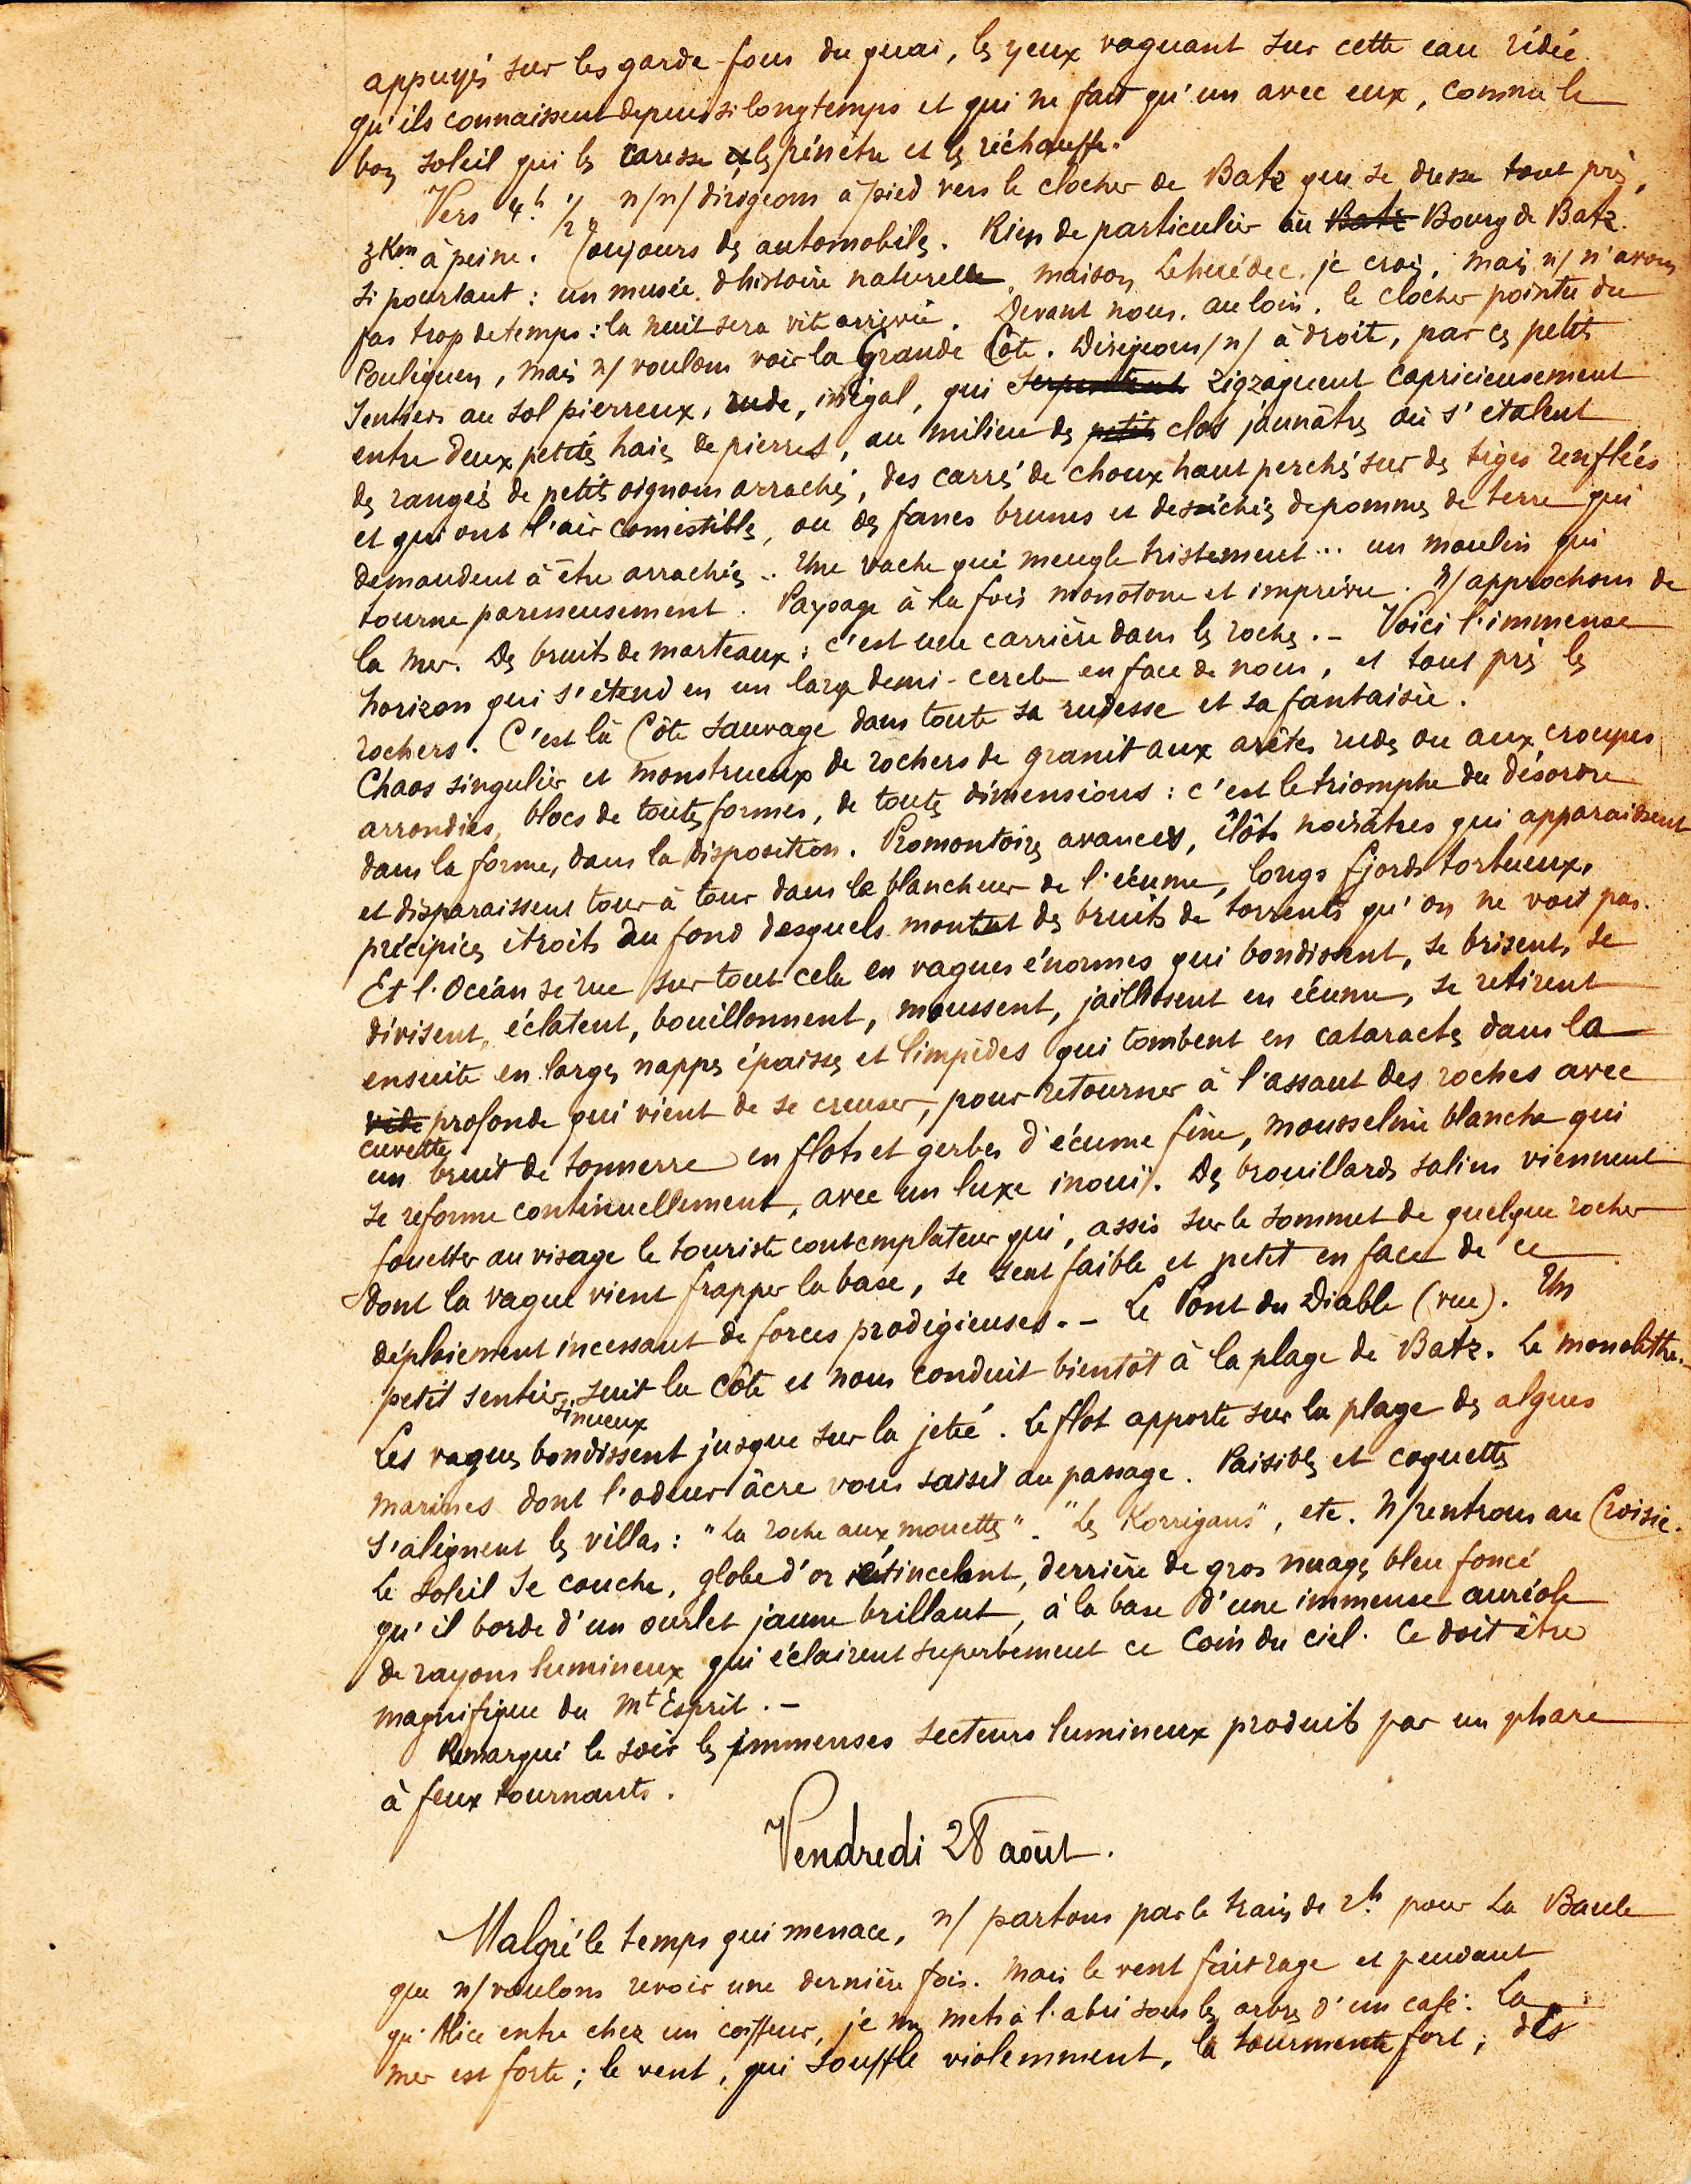 appuyés sur les garde-fous du quai, les yeux vaguant sur cette eau ridée
qu'ils connaissent depuis si longtemps et qui ne fait qu'un avec eux, comme le
bon soleil qui les caresse et les pénètre et les réchauffe.
Vers 4h 1/2 n/n/ dirigeons à pied vers le clocher de Batz qui se dresse tout près,
3Km à peine. Toujours des automobiles. Rien de particulier au Batz Bourg de Batz.
Si pourtant : un musée d'histoire naturelle, maison Lehuédec, je crois, mais n/ n'avons
pas trop de temps : la nuit sera vite arrivée. Devant nous, au loin, le clocher pointu du
Pouliguen, mais n/ voulons voir la Grande Côte. Dirigeons/n/ à droite, par ces petits
sentiers au sol pierreux, rude, inégal, qui serpentent zigzaguent capricieusement
entre deux petites haies de pierres, au milieu des petits clos jaunâtres où s'étalent
des rangées de petits oignons arrachés, des carrés de choux haut perchés sur des tiges renflées
et qui ont l'air comestibles, ou des fanes brunes et deséchées de pommes de terre qui
demandent à être arrachées.. Une vache qui meugle tristement... un moulin qui
tourne paresseusement. Paysage à la fois monotone et imprévu. N/ approchons de
la mer. Des bruits de marteaux : c'est une carrière dans les roches. - Voici l'immense
horizon qui s'étend en un large demi-cercle en face de nous, et tout près les
rochers. C'est la Côte sauvage dans toute sa rudesse et sa fantaisie.
Chaos singulier et monstrueux de rochers de granit aux arêtes rudes ou aux croupes
arrondies, blocs de toutes formes, de toutes dimensions : c'est le triomphe du désordre
dans la forme, dans la disposition. Promontoires avancés, îlôts noirâtres qui apparaissent
et disparaissent tour à tour dans la blancheur de l'écume, longs fjords tortueux,
précipices étroits du fond desquels montent des bruits de torrents qu'on ne voit pas.
Et l'Océan se rue sur tout cela en vagues énormes qui bondissent, se brisent, se
divisent, éclatent, bouillonnent, moussent, jaillissent en écume, se retirent
ensuite en larges nappes épaisses et limpides qui tombent en cataractes dans la
vide profonde qui vient de se creuser, pour retourner à l'assaut des roches avec
cuvette
un bruit de tonnerre en flots et gerbes d'écume fine, mousseline blanche qui
se reforme continuellement, avec un luxe inouï. Des brouillards salins viennent
fouetter au visage le touriste contemplateur qui, assis sur le sommet de quelque rocher
dont la vague vient frapper la base, se sent faible et petit en face de ce
déploiement incessant de forces prodigieuses. - Le Pont du Diable (vue). Un
petit sentier suit la côte et nous conduit bientôt à la plage de Batz. Le monolithe.-
sinueux
Les vagues bondissent jusque sur la jetée. Le flot apporte sur la plage des algues
marines dont l'odeur âcre vous saisit au passage. Paisibles et coquettes
s'alignent les villas : "La roche aux mouettes". "Les Korrigans", etc. N/ rentrons au Croisic.
Le soleil se couche, globe d'or étincelant, derrière de gros nuages bleu foncé
qu'il borde d'un ourlet jaune brillant, à la base d'une immense auréole
de rayons lumineux qui éclairent superbement ce coin du ciel. Ce doit être
magnifique du Mt Esprit. -
Remarqué le soir les immenses secteurs lumineux produits par un phare
à feux tournants.
Vendredi 28 août.
Malgré le temps qui menace, n/ partons par le train de 2h. pour La Baule
que n/ voulons revoir une dernière fois. Mais le vent fait rage et pendant
qu'Alice entre chez un coiffeur, je me mets à l'abri sous les arbres d'un café. La
mer est forte ; le vent, qui souffle violemment, la tourmente fort ; des